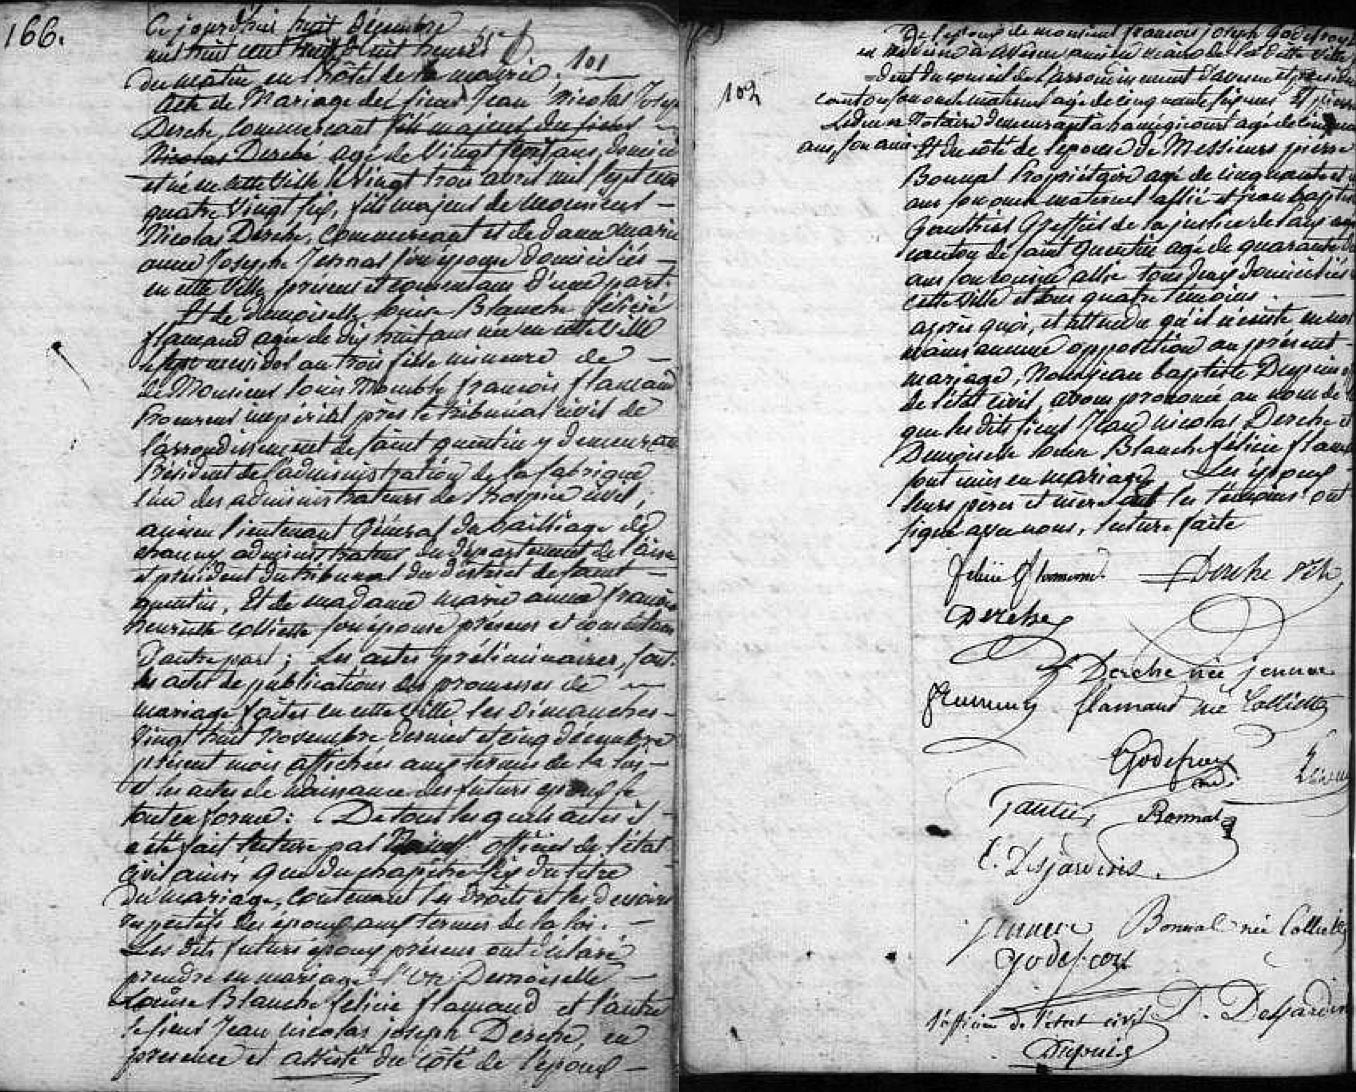 166.
Ce jourd'hui huit Décembre
mil huit cent huit heures
du matin en l'hôtel de la mairie.
101
Acte de Mariage des sieur Jean Nicolas Josep
Derche, commerçant fils majeur du sieur
Nicolas Derché agé de Vingt sept ans, domici
et né en cette Ville le vingt trois avril mil sept cent
quatre Vingt six, fils majeur de monsieur
Nicolas Derche, commercant et de dame marie
anne Joseph Jennar son epouse domiciliés
en cette Ville, présens et consentans d'une part.
Et de demoiselle louise Blanche félicie
flamand agée de dix huit ans née en cette Ville
le sept messidor an trois fille mineure de
Monsieur louis françois flamand
Procureur impérial près le tribunal civil de
l'arrondissement de saint quentin y demeurant
Président de l'administration de la fabrique
l'un des administrateurs de l'hospice civil,
ancien lieutenant Général du bailliage de
chauny, administrateur du département de l'aisne
et président du tribunal du district de saint
quentin, Et de madame marie anne françoise
henriette colliette son epouse présens et consentans
D'autre part ; Les actes préliminaires sont
les actes de publications des promesses de
mariage faites en cette Ville les Dimanches
Vingt huit Novembre dernier et cinq décembre
présent mois affichées aux termes de la loi
et les actes de naissance des futurs epoux le
tout en forme : De tous lesquels actes il
a été fait lecture par officier de l'état
civil ainsi que du chapitre six du titre
du mariage, contenant les droits et les devoirs
respectifs des époux aux termes de la loi.
Les dits futurs époux présens ont déclaré
prendre en mariage l'un Demoiselle
Louise Blanche félicie flamand et l'autre
le sieur Jean nicolas joseph Derche, en
présence et assisté du côté de l'epoux
102
De l'epoux de monsieur francois joseph Godefroy
en médecine à avesne, ancien maire de la dite Ville
dent du conseil de l'arrondissement d'avesne et président
canton son oncle maternel agé de cinquante six ans Et pierre
Notaire demeurant à agé de cinq
ans, son ami Et du côté de l'epouse de Messieurs pierre
Bonnal Propriétaire agé de cinquante et
ans son oncle maternel allié et jean baptiste
Gauthier Greffier de la justice de paix du
canton de saint quentin agé de quarante
ans son cousin allié tous deux domiciliés
cette Ville et tous quatre témoins.
après quoi, et attendu qu'il n'existe en nos
mains aucune opposition au présent
mariage, Nous jean baptiste Dupuis
de l'état civil, avons prononcé au nom de
que les dits sieur Jean nicolas Derche et
Demoiselle louise Blanche félicie flam
sont unis en mariage Les époux
leurs pères et mère et les témoins ont
signé avec nous, lecture faite
felicie flamand. Derche
Derche
Derche née jennar
flamand née Colliette
Godefroy
Gautier Bonnal
E. Desjardins.
Bonnal née Colliette
Godefroy
D. Desjardin
l'officier de l'état civil
Dupuis